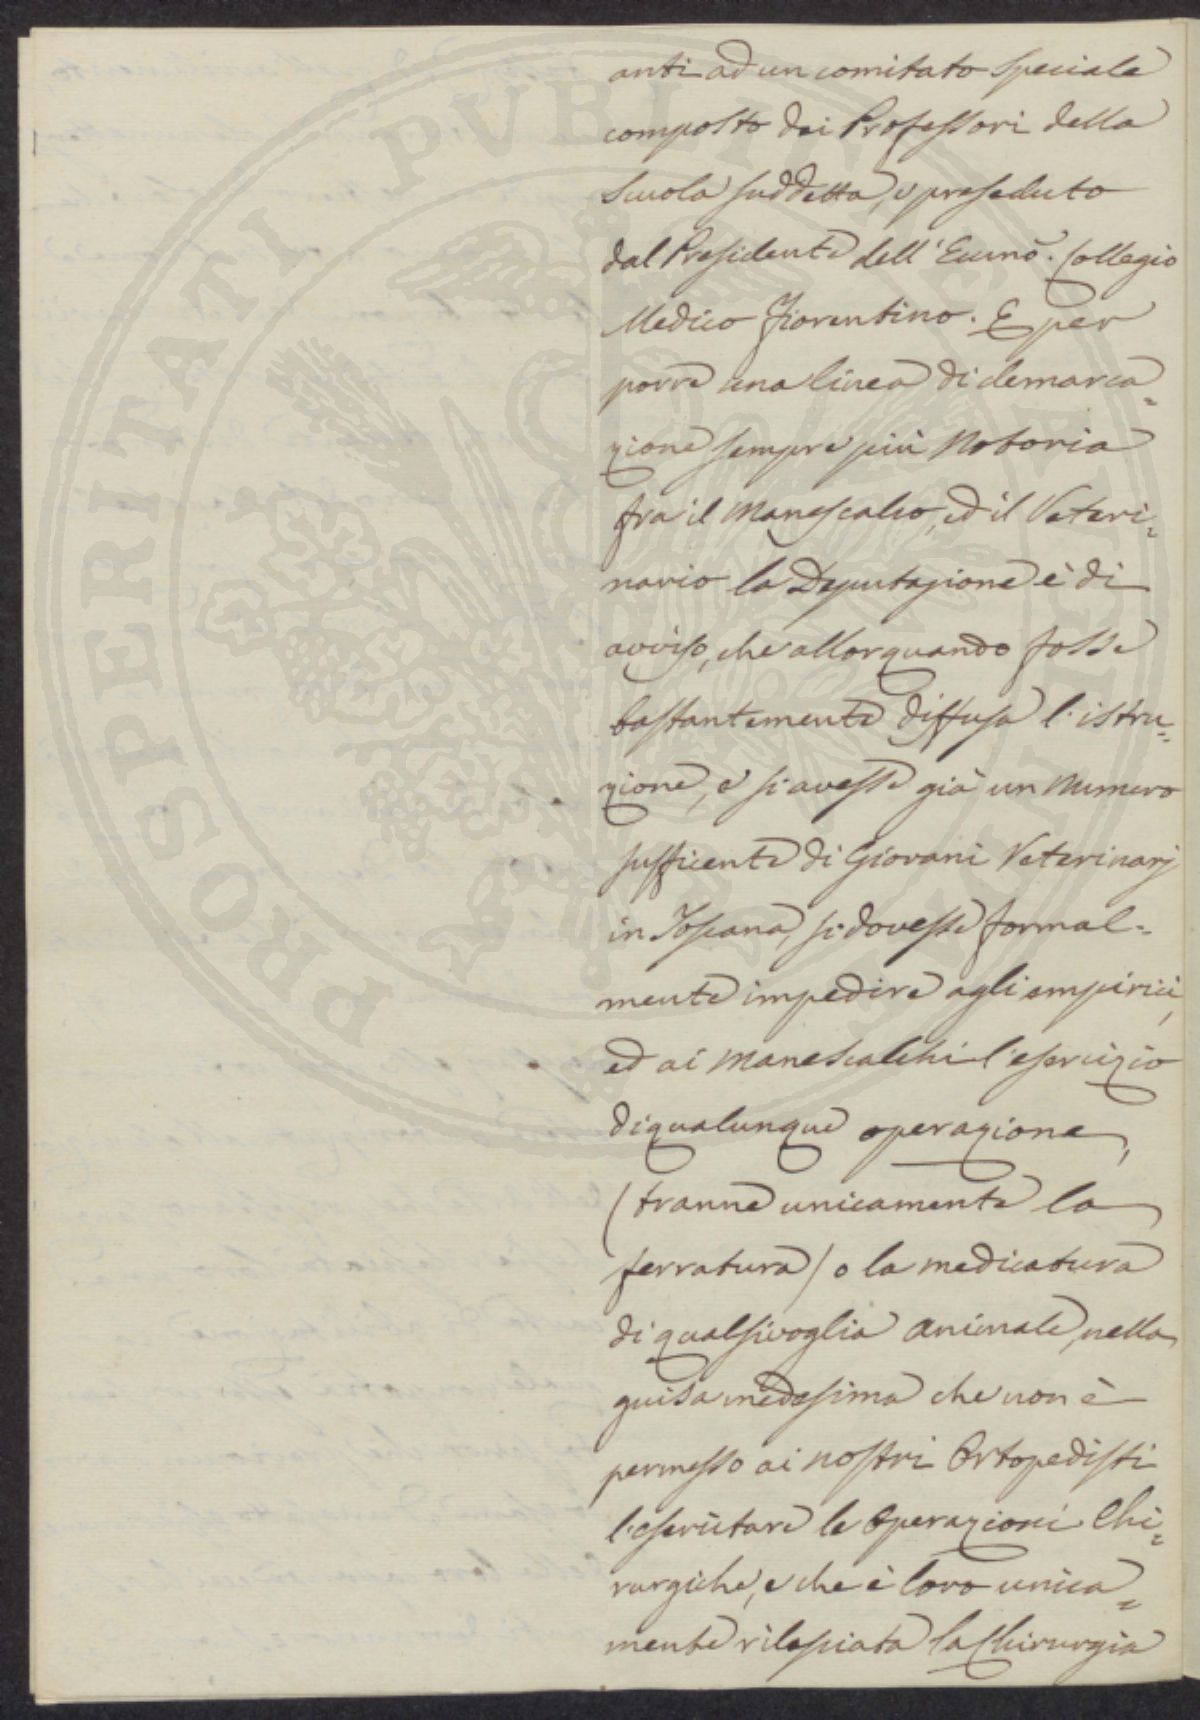 anti ad un comitato speciale
composto dei Professori della
Scuola suddetta, e preseduto
dal Presidente dell' Eccmo. Collegio
Medico Fiorentino. E per
porre una linea di demarca=
zione sempre più notoria
fra il Manescalco, ed il Veteri=
nario la Deputazione è di
avviso, che allorquando fosse
bastantemente diffusa l'istru=
zione, e si avesse già un numero
sufficente di Giovani Veterinarj
in Toscana, si dovesse formal=
mente impedire agli empirici,
ed ai Manescalchi l'esercizio
di qualunque operazione,
(tranne unicamente la
ferratura) o la medicatura
di qualsivoglia animale, nella
guisa medesima che non è
permesso ai nostri Ortopedisti
l'esercitare le Operazioni Chi=
rurgiche, e che è loro unica=
mente rilasciata la Chirurgia
PROSPERITATI PVBLICAE